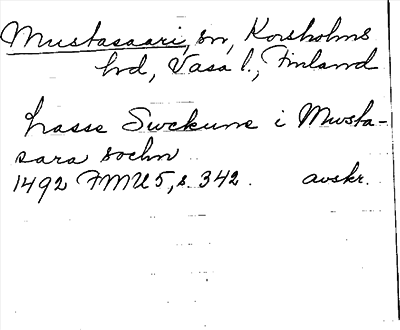 Mustasaari, sn, Korsholms
hd, Vasa l., Finland
Lasse Swekune i Musta-
sara sochn
1492 FMU 5, s. 342. avskr.